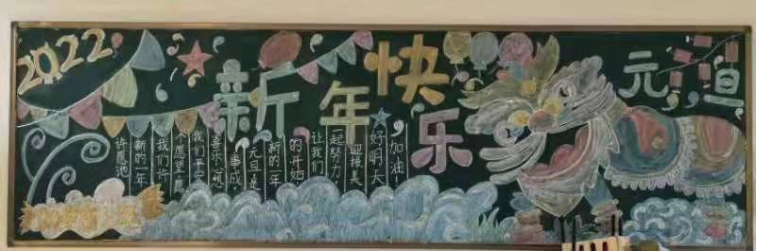 2022
新年快乐
元旦
许愿池
新的一年
我们许
个愿望愿
我们平安
喜乐心想
事成
元旦是
新的一年
的开始
让我们
起努力
迎接美
好明天
加油